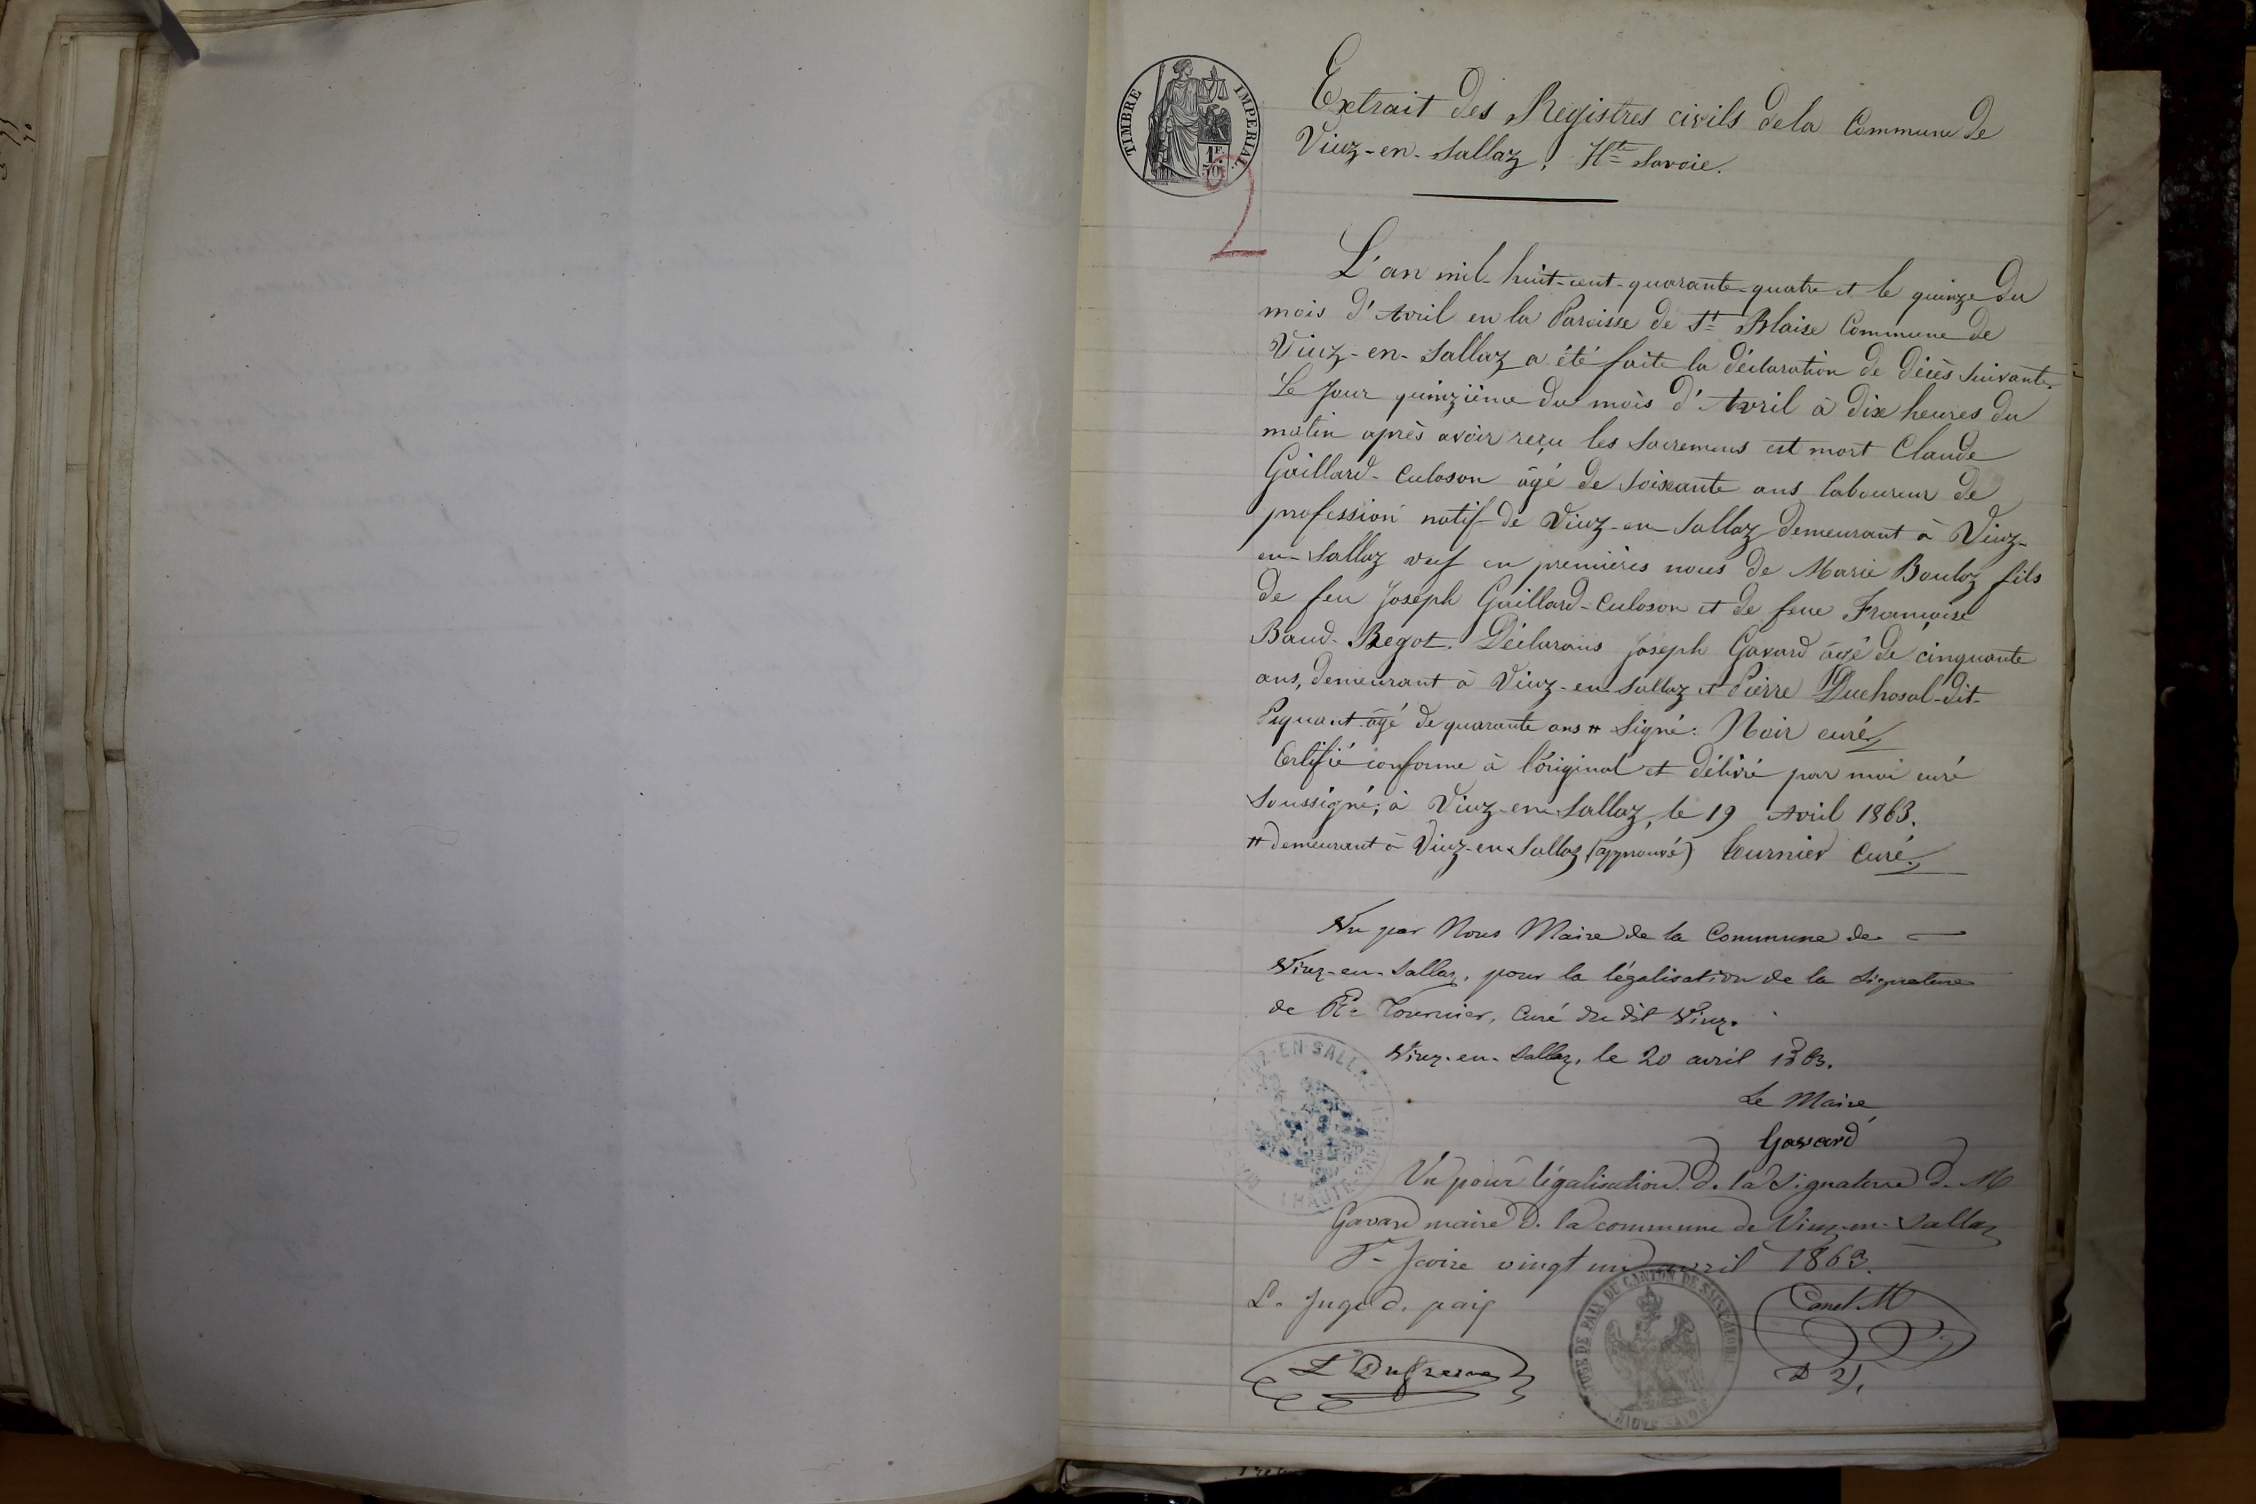 TIMBRE IMPERIAL.
1F.
50C.
2
Extrait des Registres civils de la Commune de
Viuz-en-Sallaz, Hte Savoie.
L'an mil-huit-cent-quarante-quatre et le quinze du
mois d'Avril en la Paroisse de St Blaise Commune de
Viuz-en-Sallaz a été faite la déclaration de décès suivante.
Le jour quinzième du mois d'Avril à dix heures du
matin après avoir reçu les Sacremens est mort Claude
Gaillard-Culoson âgé de soixante ans laboureur de
profession natif de Viuz-en-Sallaz demeurant à Viuz-
en-Sallaz veuf en premières noces de Marie Bouloz fils
de feu Joseph Gaillard-Culoson et de feue Françoise
Baud-Begot. Déclarans Joseph Gavard âgé de cinquante
ans, demeurant à Viuz-en-Sallaz et Pierre Duchosal-dit-
Piquant âgé de quarante ans # Signé: Noir curé
Certifié conforme à l'original et délivré par moi curé
Soussigné, à Viuz-en-Sallaz, le 19 Avril 1863.
# demeurant à Viuz-en-Sallaz (approuvé) Tournier Curé.
Vu par Nous Maire de la Commune de
Viuz-en-Sallaz, pour la légalisation de la Signature
de Rd Tournier, Curé du dit Viuz.
Viuz-en-Sallaz, le 20 avril 1863.
Le Maire
Gavard
VIUZ-EN-SALLAZ
HAUTE-SAVOIE
Vu pour légalisation de la Signature de M
Gavard maire de la commune de Viuz-en-Sallaz
St Jeoire vingt un avril 1863.
Le Juge de paix
L Dufresne
JUGE DE PAIX DU CANTON DE
HAUTE SAVOIE